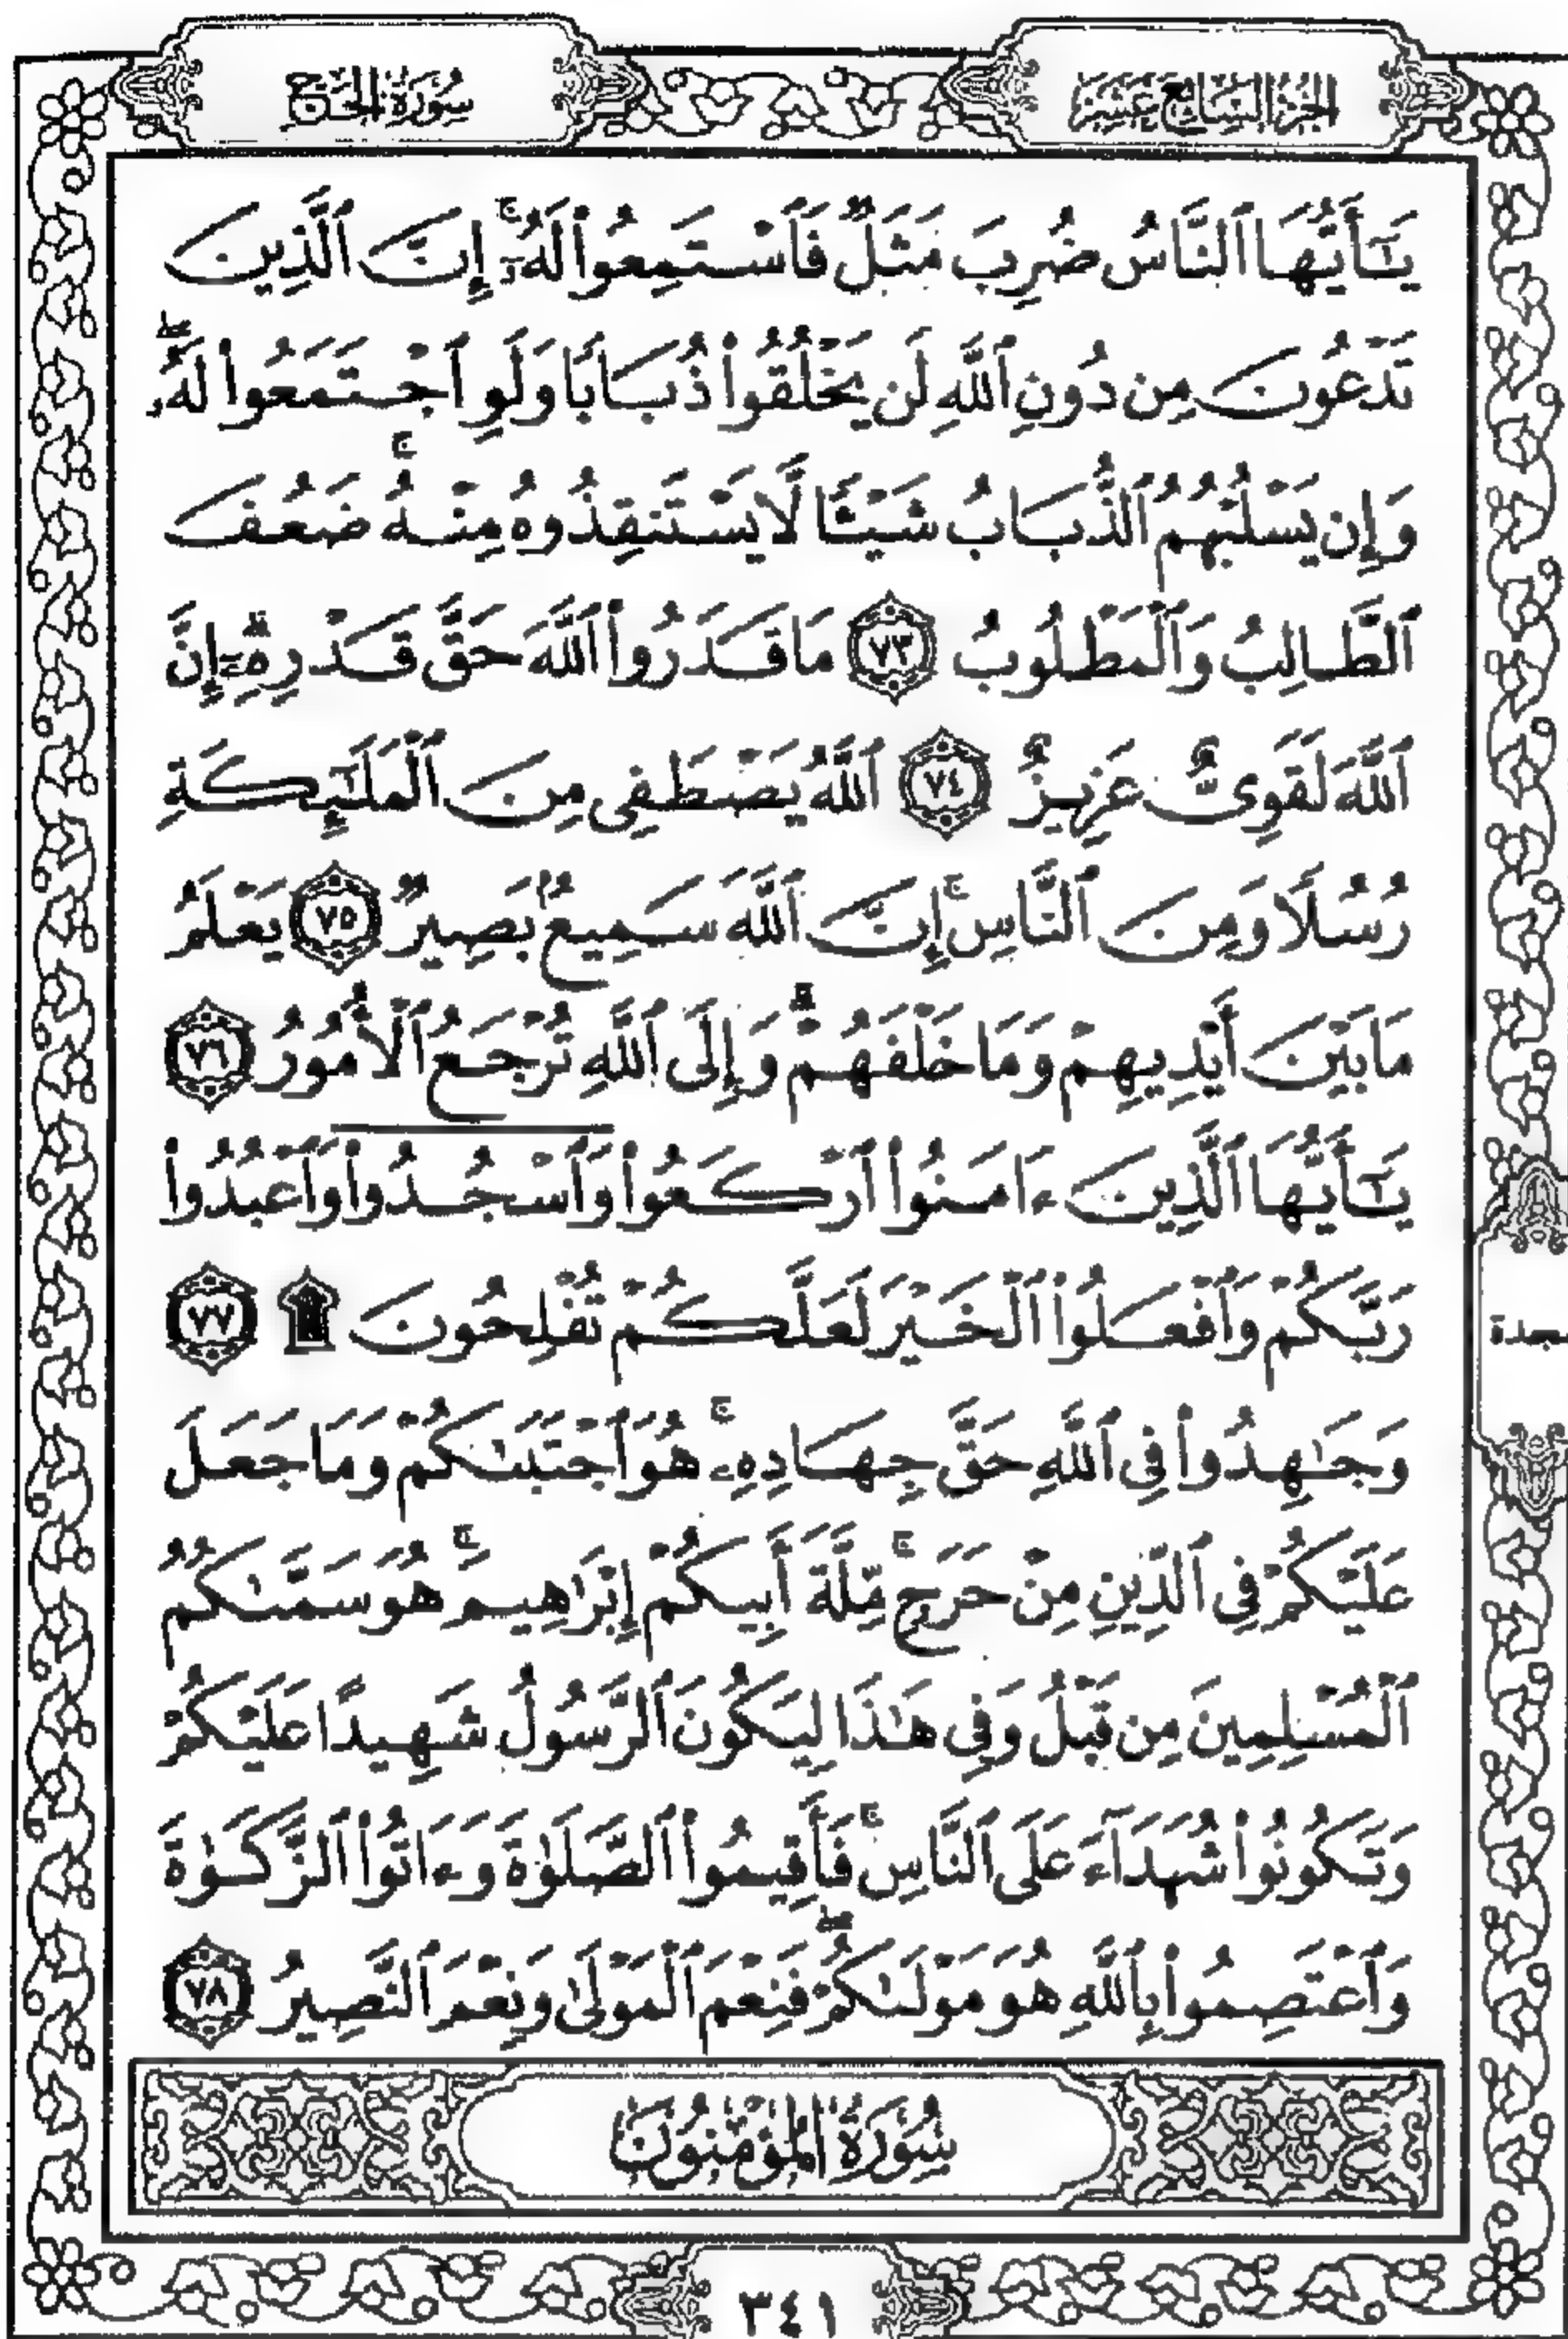 الجزء السابع عشر
سورة الحج
يَٰٓأَيُّهَا ٱلنَّاسُ ضُرِبَ مَثَلٌ فَٱسْتَمِعُوا۟ لَهُۥٓ ۚ إِنَّ ٱلَّذِينَ
تَدْعُونَ مِن دُونِ ٱللَّهِ لَن يَخْلُقُوا۟ ذُبَابًا وَلَوِ ٱجْتَمَعُوا۟ لَهُۥ ۖ
وَإِن يَسْلُبْهُمُ ٱلذُّبَابُ شَيْـًٔا لَّا يَسْتَنقِذُوهُ مِنْهُ ۚ ضَعُفَ
ٱلطَّالِبُ وَٱلْمَطْلُوبُ ٧٣ مَا قَدَرُوا۟ ٱللَّهَ حَقَّ قَدْرِهِۦٓ ۗ إِنَّ
ٱللَّهَ لَقَوِىٌّ عَزِيزٌ ٧٤ ٱللَّهُ يَصْطَفِى مِنَ ٱلْمَلَٰٓئِكَةِ
رُسُلًا وَمِنَ ٱلنَّاسِ ۚ إِنَّ ٱللَّهَ سَمِيعٌۢ بَصِيرٌ ٧٥ يَعْلَمُ
مَا بَيْنَ أَيْدِيهِمْ وَمَا خَلْفَهُمْ ۗ وَإِلَى ٱللَّهِ تُرْجَعُ ٱلْأُمُورُ ٧٦
يَٰٓأَيُّهَا ٱلَّذِينَ ءَامَنُوا۟ ٱرْكَعُوا۟ وَٱسْجُدُوا۟ وَٱعْبُدُوا۟
رَبَّكُمْ وَٱفْعَلُوا۟ ٱلْخَيْرَ لَعَلَّكُمْ تُفْلِحُونَ ۩ ٧٧
وَجَٰهِدُوا۟ فِى ٱللَّهِ حَقَّ جِهَادِهِۦ ۚ هُوَ ٱجْتَبَىٰكُمْ وَمَا جَعَلَ
عَلَيْكُمْ فِى ٱلدِّينِ مِنْ حَرَجٍ ۚ مِّلَّةَ أَبِيكُمْ إِبْرَٰهِيمَ ۚ هُوَ سَمَّىٰكُمُ
ٱلْمُسْلِمِينَ مِن قَبْلُ وَفِى هَٰذَا لِيَكُونَ ٱلرَّسُولُ شَهِيدًا عَلَيْكُمْ
وَتَكُونُوا۟ شُهَدَآءَ عَلَى ٱلنَّاسِ ۚ فَأَقِيمُوا۟ ٱلصَّلَوٰةَ وَءَاتُوا۟ ٱلزَّكَوٰةَ
وَٱعْتَصِمُوا۟ بِٱللَّهِ هُوَ مَوْلَىٰكُمْ ۖ فَنِعْمَ ٱلْمَوْلَىٰ وَنِعْمَ ٱلنَّصِيرُ ٧٨
سُورَةُ المُؤْمِنُونَ
٣٤١